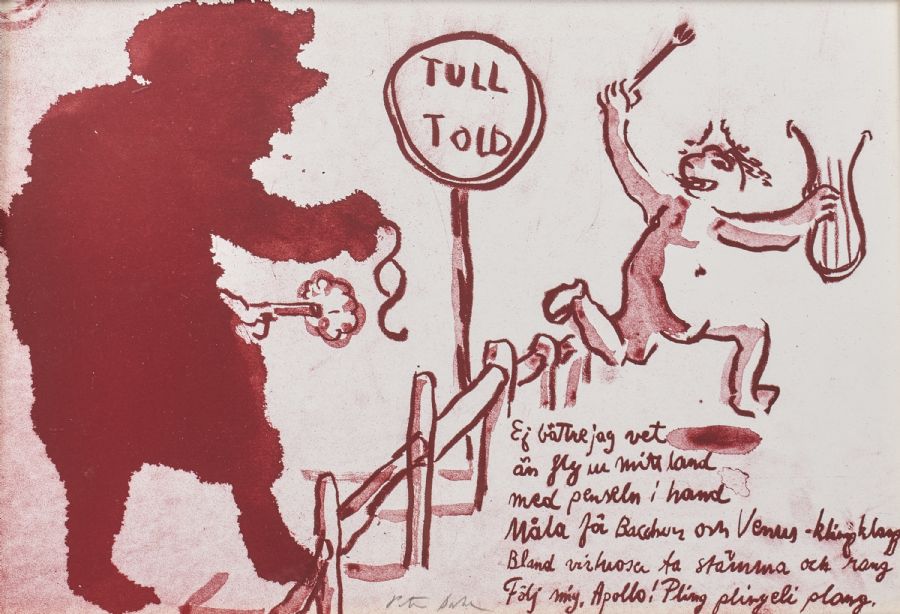 TULL
TOLD
Ej bättre jag vet
än fly ur mitt land
med penseln i hand
Måla för Bacchus och Venus - klingklang
Bland virtuosa ta stämma och rang
Följ mig, Apollo! Pling plingeli plang.